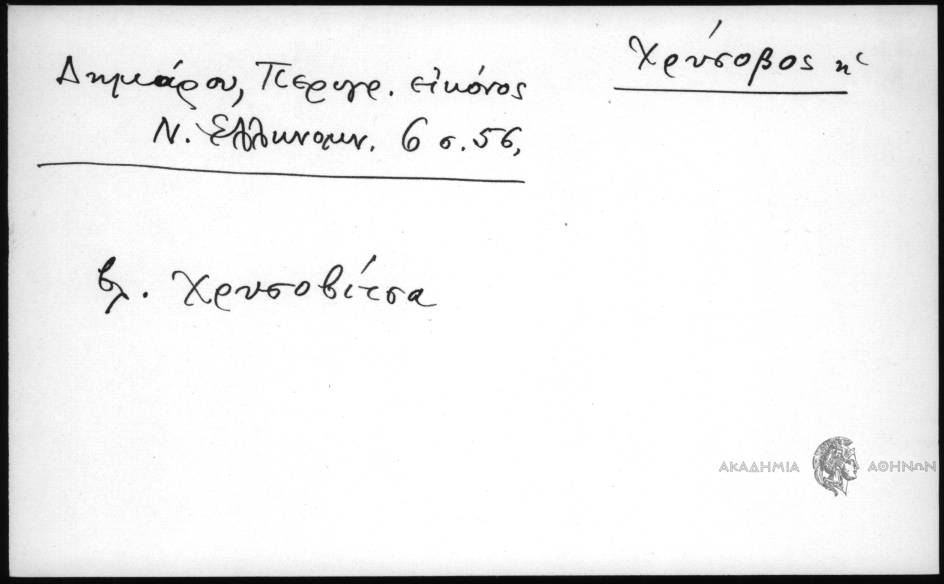 Χρύσοβος η
Δημάρου, Περιγρ. εἰκόνος
Ν. Ἑλληνομν. 6 σ. 56,
βλ. Χρυσοβίτσα
ΑΚΑΔΗΜΙΑ ΑΘΗΝΩΝ